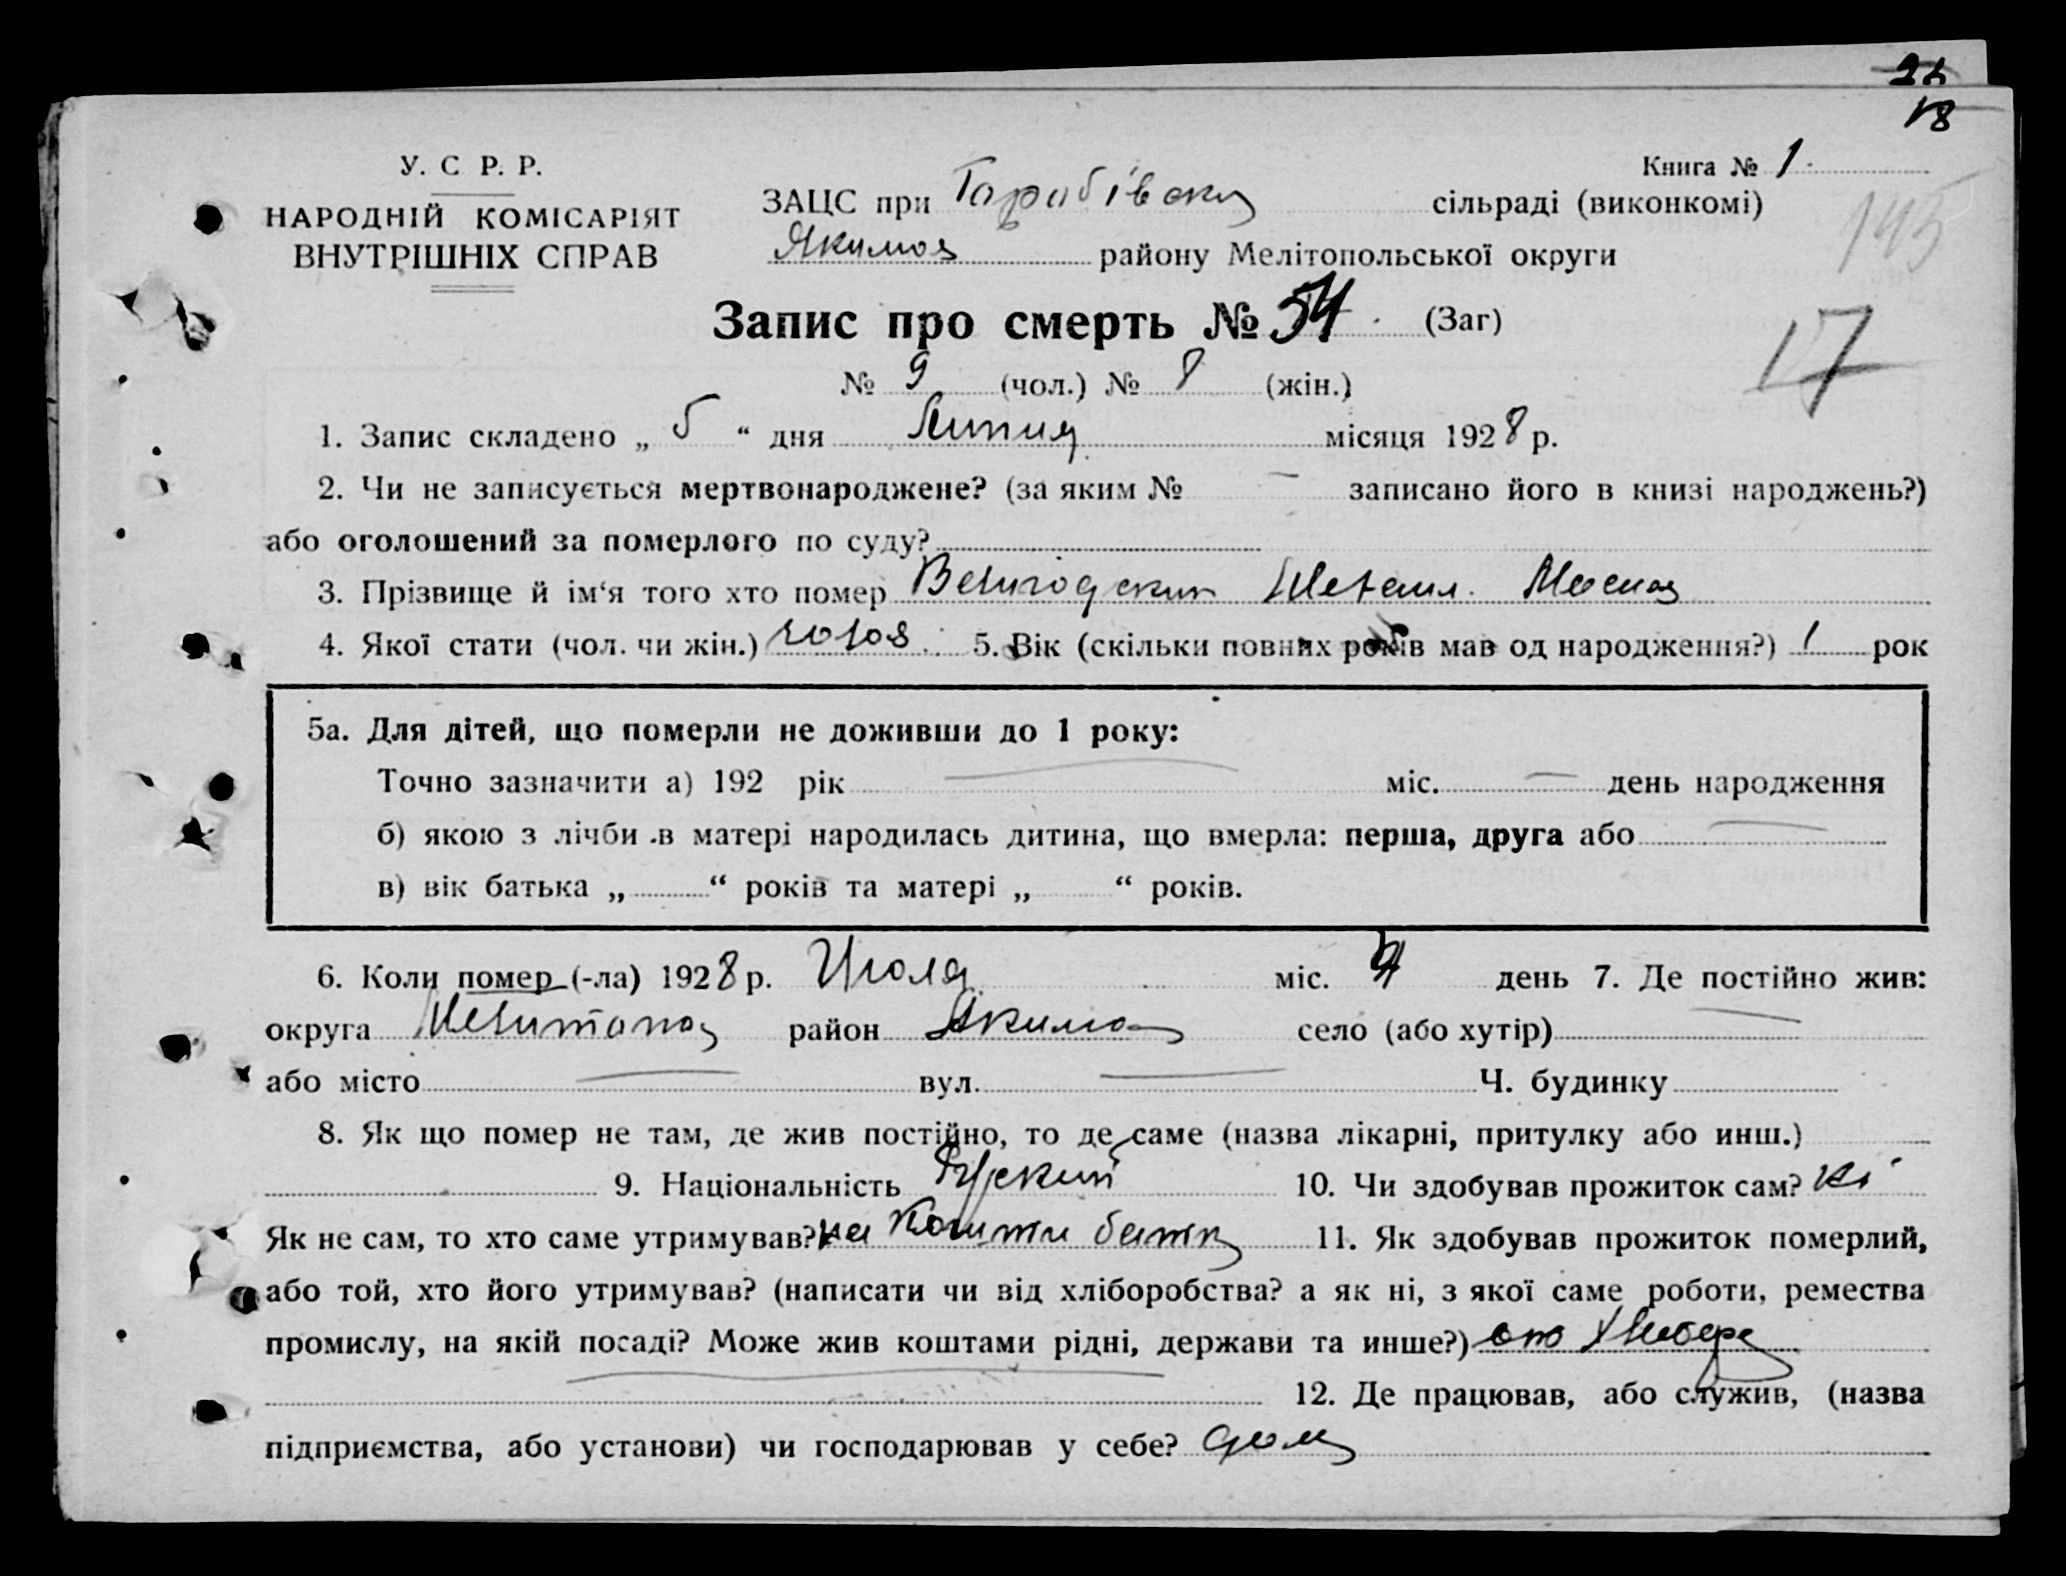 18
У. С. Р. Р.
Книга № 1
НАРОДНІЙ КОМІСАРІЯТ
ВНУТРІШНІХ СПРАВ
ЗАЦС при сільраді (виконкомі)
145
Якимов району Мелітопольської округи
Запис про смерть № 54 (Заг)
17
№ 9 (чол.) № 8 (жін.)
1. Запис складено „ 5 “ дня Липня місяця 1928 р.
2. Чи не записується мертвонароджене? (за яким № — записано його в книзі народжень?)
або оголошений за померлого по суду?
3. Прізвище й ім‘я того хто помер
4. Якої стати (чол. чи жін.) 5. Вік (скільки повних років мав од народження?) 1 рок
5а. Для дітей, що померли не доживши до 1 року:
Точно зазначити а) 192 рік — міс. — день народження
б) якою з лічби в матері народилась дитина, що вмерла: перша, друга або —
в) вік батька „ “ років та матері „ “ років.
6. Коли помер (-ла) 1928 р. Июля міс. 4 день 7. Де постійно жив:
округа Мелитопо район Якимо село (або хутір) —
або місто — вул. — Ч. будинку
8. Як що помер не там, де жив постійно, то де саме (назва лікарні, притулку або инш.)
9. Національність Руский 10. Чи здобував прожиток сам? ні
Як не сам, то хто саме утримував? на Кошти батк 11. Як здобував прожиток померлий,
або той, хто його утримував? (написати чи від хліборобства? а як ні, з якої саме роботи, ремества
промислу, на якій посаді? Може жив коштами рідні, держави та инше?) от
12. Де працював, або служив, (назва
підприємства, або установи) чи господарював у себе? дома